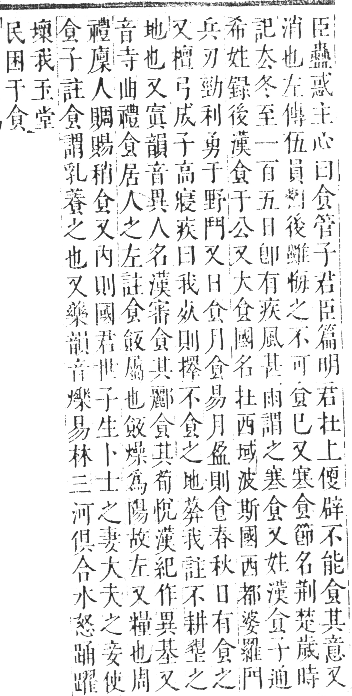 臣蠱惑主心曰食管子君臣篇明君在上便辟不能食其意又
消也左傳伍員曰後雖悔之不可食已又寒食節名荆楚歲時
記去冬至一百五日卽有疾風甚雨謂之寒食又姓漢食子通
希姓錄後漢食于公又大食國名在西域波斯國西都婆羅門
兵刃勁利勇于野鬥又日食月食易月盈則食春秋日有食之
又檀弓成子高寢疾曰我死則擇不食之地葬我註不耕墾之
地也又寘韻音異人名漢審食其酈食其荀悅漢紀作異基又
音寺曲禮食居人之左註食飯屬也飯燥爲陽故左又糧也周
禮廩人賙賜稍食又內則國君世子生卜士之妻大夫之妾使
食子註食謂乳養之也又藥韻音爍易林三河俱合水怒踊躍
壞我玉堂
民困于食